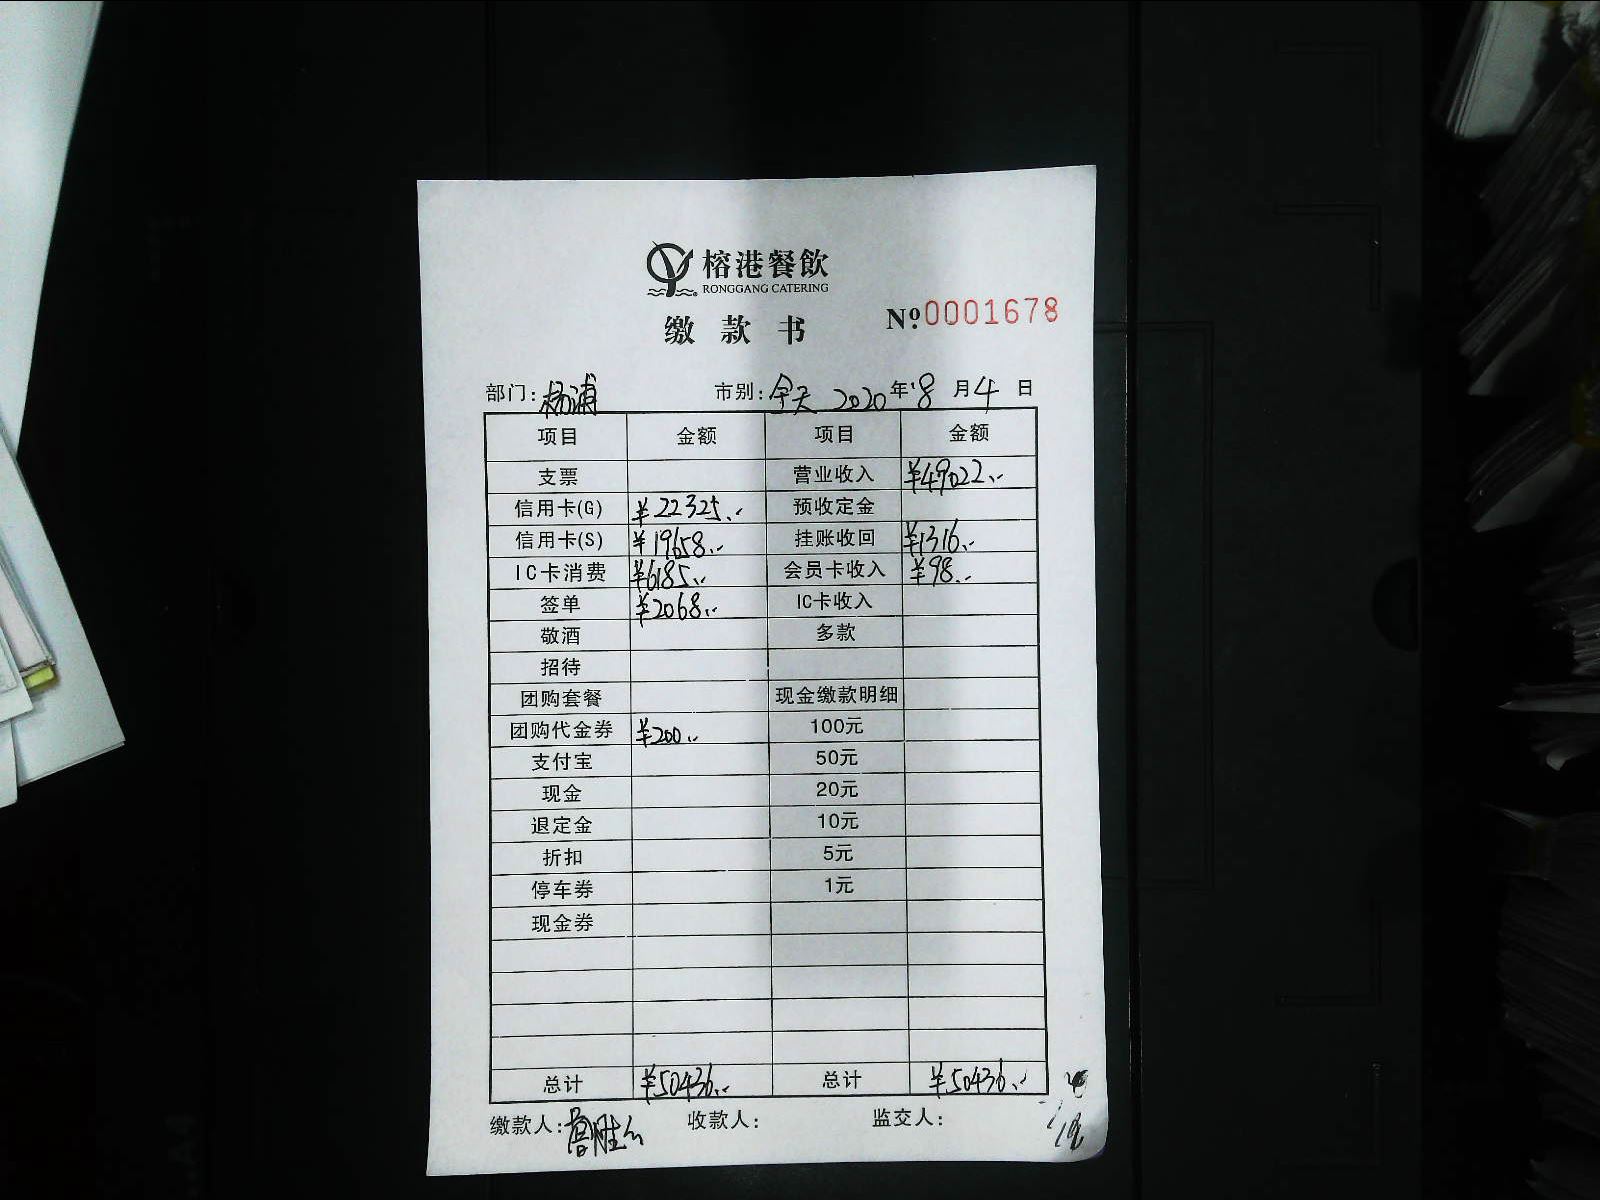 榕港餐飲
RONGGANG CATERING
缴款书 №0001678
部门：杨浦 市别：全天 2020年8月4日
项目 金额 项目 金额
支票 营业收入 ¥49022..
信用卡(G) ¥22325.. 预收定金
信用卡(S) ¥19658.. 挂账收回 ¥1316..
IC卡消费 ¥6185.. 会员卡收入 ¥98..
签单 ¥2068.. IC卡收入
敬酒 多款
招待
团购套餐 现金缴款明细
团购代金券 ¥200.. 100元
支付宝 50元
现金 20元
退定金 10元
折扣 5元
停车券 1元
现金券
总计 ¥50436.. 总计 ¥50436..
缴款人： 收款人： 监交人：